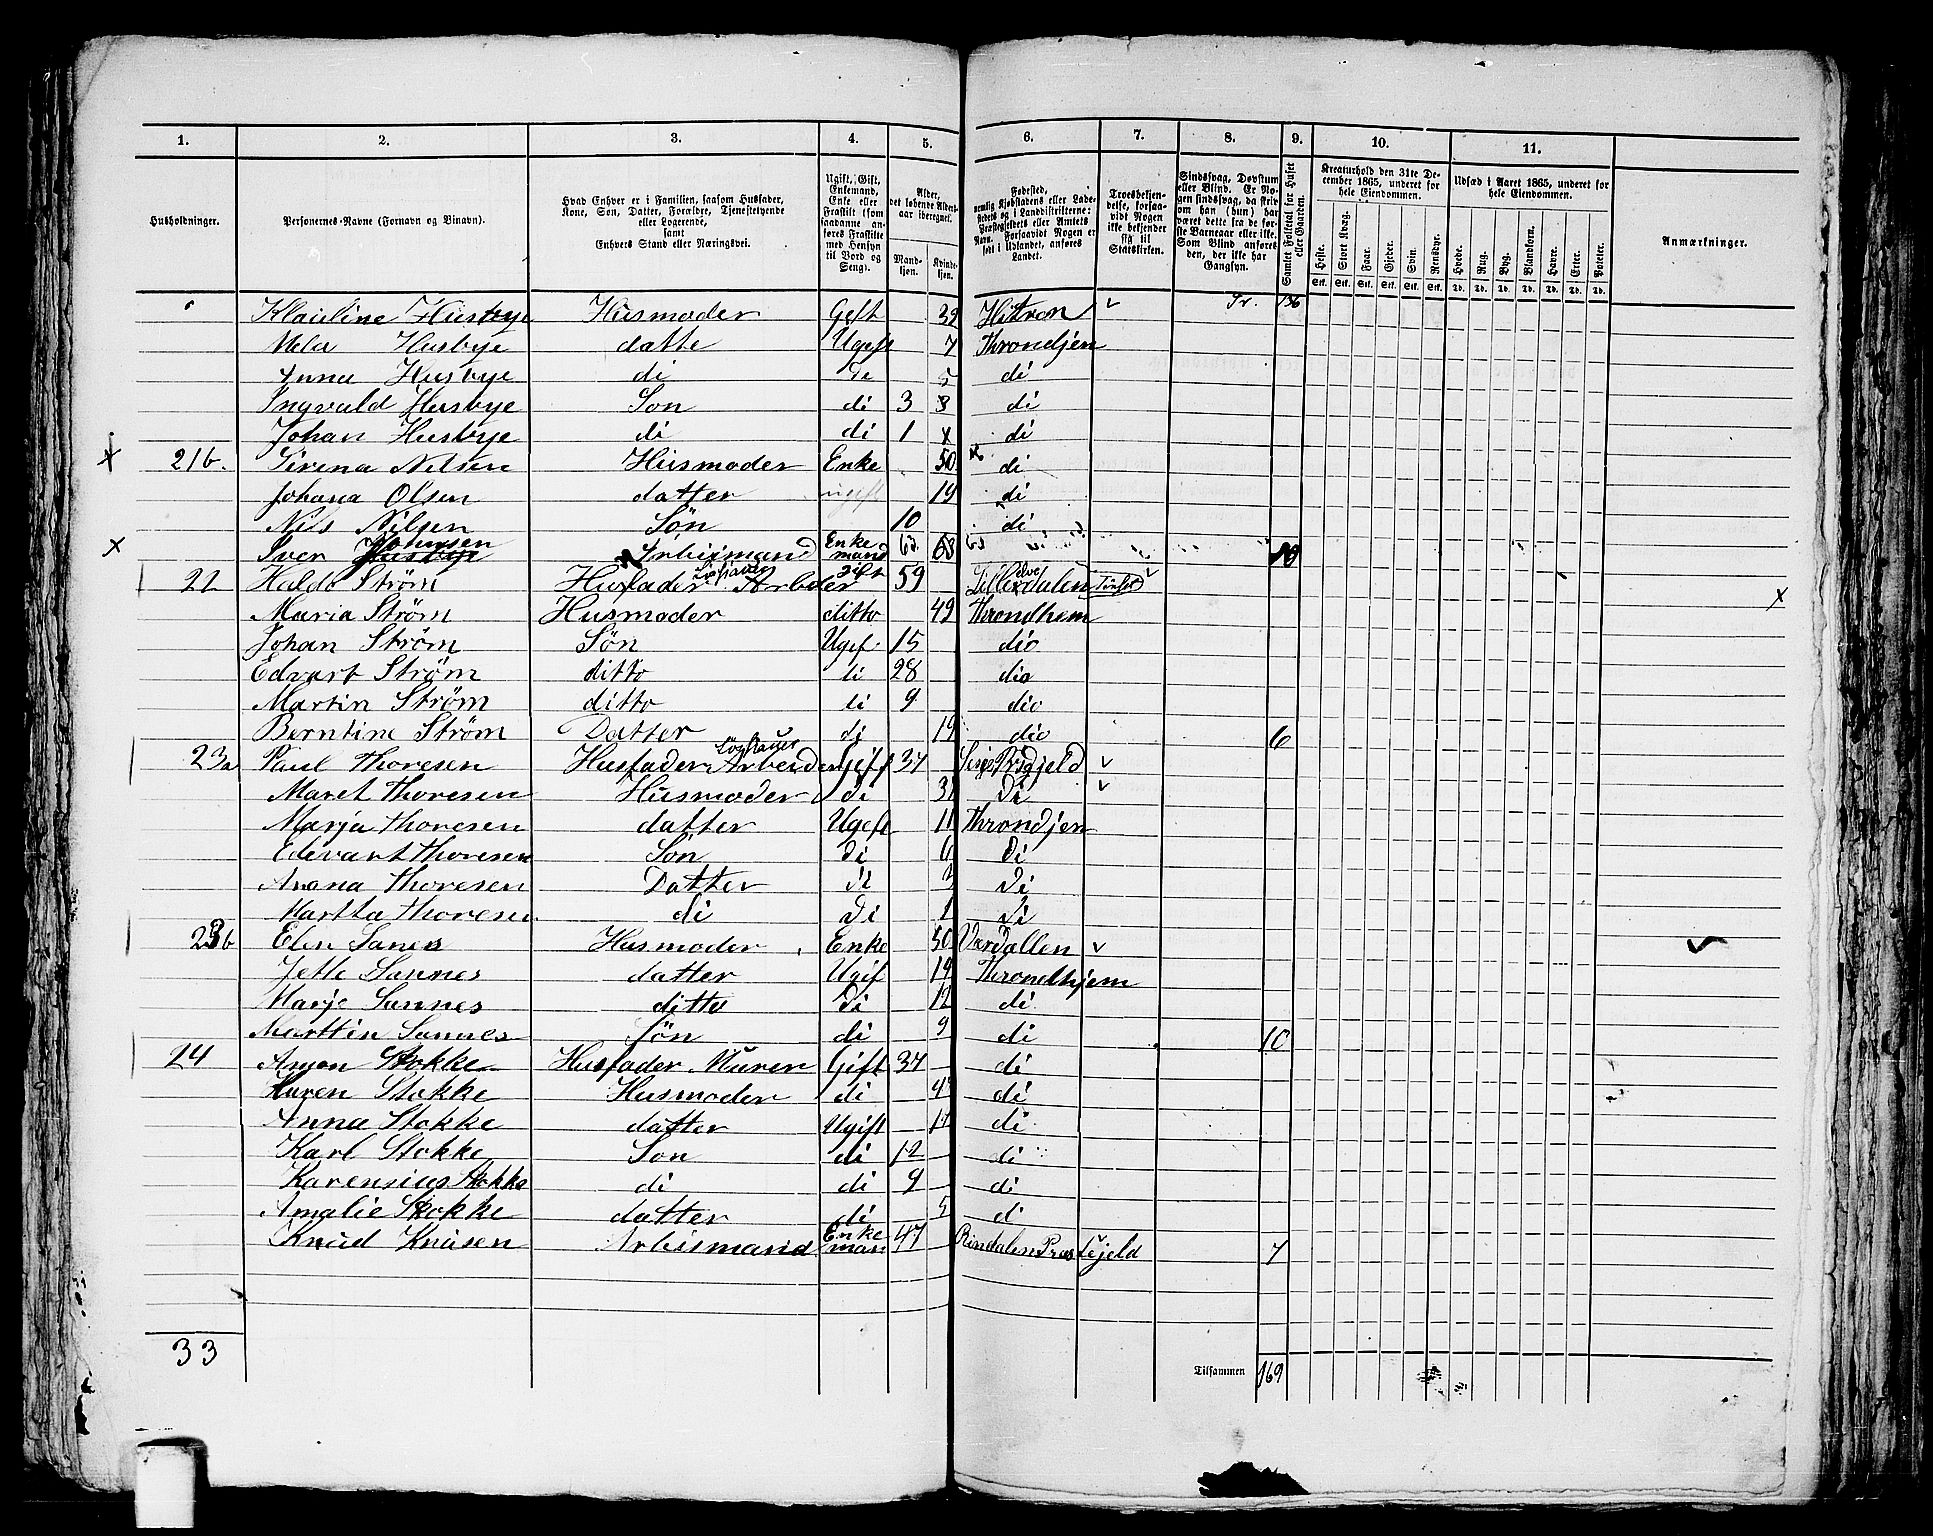 1. 2. 3. 4. 5. 6. 7. 8. 9. 10. 11.
Husholdninger. Personernes-Navne (Fornavn og Binavn). Hvad Enhver er i Familien, saasom Husfader, Kone, Søn, Datter, Forældre, Tjenestetyende eller Logerende, samt Enhvers Stand eller Næringsvei. Ugift, Gift, Enkemand, Enke eller Fraskilt (som saadanne anføres Fraskilte med Hensyn til Bord og Seng). Alder, det løbende Alders-aar iberegnet. Mandkjøn. Kvindekjøn. Fødested, nemlig Kjøbstadens eller Ladestedets og i Landdistrikterne: Præstegjeldets eller Amtets Navn. Forsaavidt Nogen er født i Udlandet, anføres Landet. Troesbekjendelse, forsaavidt Nogen ikke bekjender sig til Statskirken. Sindssvag, Døvstum eller Blind. Er Nogen sindssvag, da skriv om han (hun) har været dette fra de første Barneaar eller ikke. Som Blind anføres den, der ikke har Gangsyn. Samlet Folketal for Huset eller Gaarden. Kreaturhold den 31te December 1865, underet for hele Eiendommen. Heste. Stort Kvæg. Faar. Gjeder. Svin. Rensdyr. Udsæd i Aaret 1865, underet for hele Eiendommen. Hvede. Rug. Byg. Blandkorn. Havre. Erter. Poteter. Anmærkninger.
Stk. Stk. Stk. Stk. Stk. Stk. Td. Td. Td. Td. Td. Td. Td.
Klauline Husbye Husmoder Geft 39 Hittron v Tr. 136
Husbye datte Ugift 7 Throndjen
Anna Husbye di di 5 di
Ingvald Husbye Son di 3 di
Johan Husbye di di 1 x di
x 21b. Sirena Nilsen Husmoder Enke 50 di
Johana Olsen datter ugift 19 di
Nils Nilsen Søn 10 di
x Iver Johnsen Husbye Arbismand Enke mand 63 68 10
22 Strøm Husfader Arbeder Gift 59 v
Maria Strøm Husmoder ditto 49 Throndhem x
Johan Strøm Søn Ugef 15 dio
Edvart Strøm ditto li 28 dio
Martin Strøm ditto li 9 dio
Berntine Strøm Datter di 19 dio 6
23a Paul Thoresen Husfader Arbeider Gift 37 v
Maret Thoresen Husmoder di di v
Marja Thoresen datter Ugeft 11 Throndjen
Edevart Thoresen Son di 6 di
Anana Thoresen Datter di 3 di
Martta Thoresen di di 1 di
23b Elen Sanes Husmoder Enke 50 Værdallen v
Jette Sannes datter Ugif 19 Throndhjem
Marje Sannes ditto di 12 di
Marttin Sannes Søn di 9 di 10
24 Stokke Husfader Murer Gift 37 di
Karen Stokke Husmoder di di
Anna Stokke datter Ugift 17 di
Karl Stokke Son di 12 di
Karensius Stokke di di 9 di
Amalie Stokke datter di 5 di
Knud Knusen Arbeismand Enke man 47 Rindalen Præstejeld 7
33 Tilsammen 169